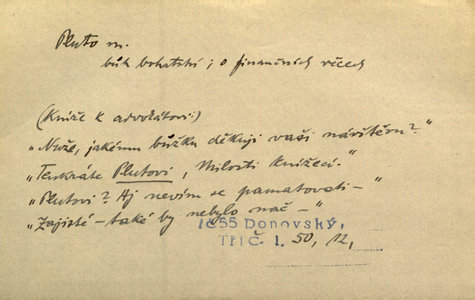 Pluto m.
bůh bohatství; o finančních věcech
(Kníže k advokátovi:)
"Nuže, jakému bůžku děkuji vaši návštěvu?"
"Tenkráte Plutovi, Milosti knížecí."
"Plutovi? Aj nevím se pamatovati—"
"Zajisté — také by nebylo nač —"
1č55 Donovský,
Tříč. 1. 50, 12,